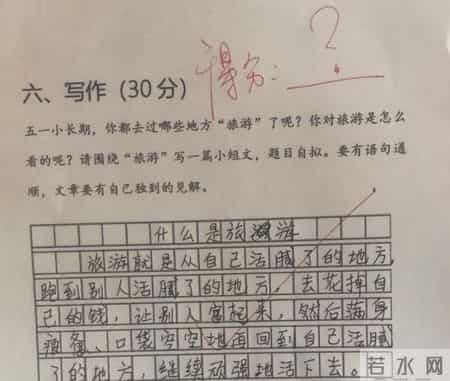 得分：？
六、写作（30分）
五一小长期，你都去过哪些地方“旅游”了呢？你对旅游是怎么
看的呢？请围绕“旅游”写一篇小短文，题目自拟。要有语句通
顺，文章要有自己独到的见解。
什么是旅游
旅游就是从自己活腻了的地方，
跑到别人活腻了的地方，去花掉自
己的钱，让别人富起来，然后满身
疲惫、口袋空空地再回到自己活腻
了的地方，继续顽强地活下去。
若水网